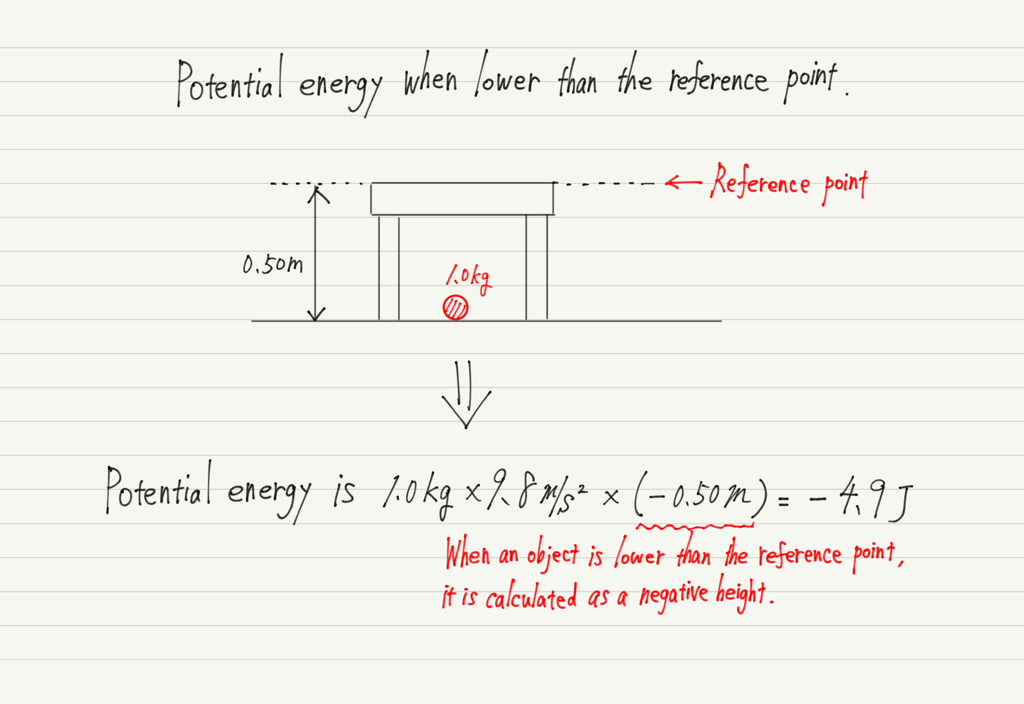 Potential energy when lower than the reference point.
← Reference point
0.50m
1.0kg
Potential energy is 1.0kg × 9.8 m/s² × (-0.50m) = - 4.9 J
When an object is lower than the reference point,
it is calculated as a negative height.